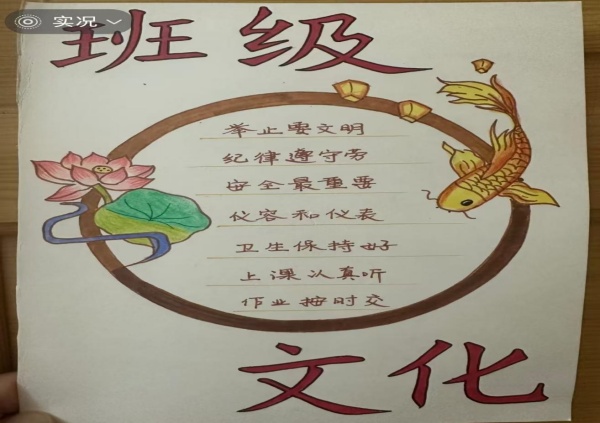 实况
班级
举止要文明
纪律遵守劳
安全最重要
仪容和仪表
卫生保持好
上课认真听
作业按时交
文化